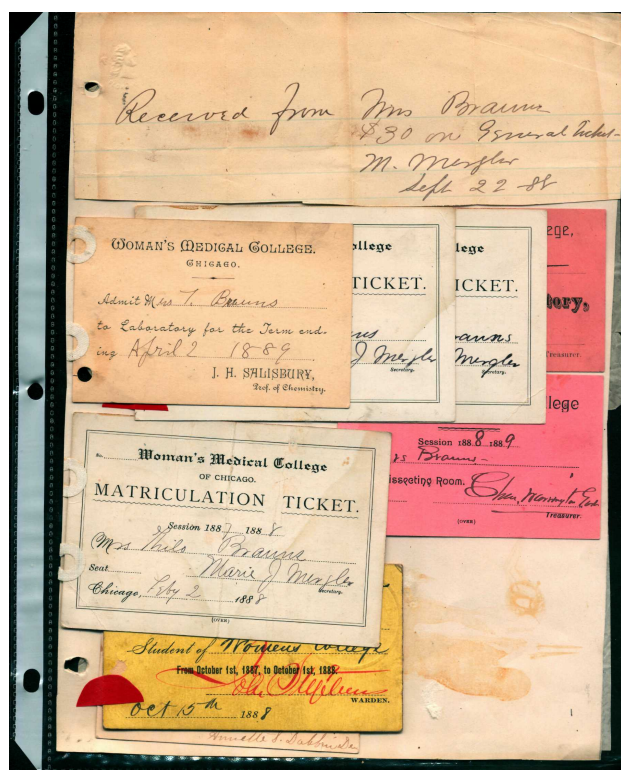 Received from Mrs Brauns
$30 on General Ticket-
M. Mergler
Sept 22-88
WOMAN'S MEDICAL COLLEGE.
CHICAGO.
Admit Mrs T. Brauns
to Laboratory for the Term end-
ing April 2 1889
J. H. SALISBURY,
Prof. of Chemistry.
ollege
TICKET.
ns
J Mergler
Secretary.
llege
ICKET.
rauns
Mergler
Secretary.
ege,
ory,
Treasurer.
llege
Session 1888 1889
rs Brauns-
issecting Room.
Treasurer.
(OVER)
No.
Woman's Medical College
OF CHICAGO.
MATRICULATION TICKET.
Session 1887 1888
Mrs Thilo Brauns
Seat Marie J Mergler
Secretary.
Chicago, Feby 2 1888
(OVER)
Student of Womens College
From October 1st, 1887, to October 1st, 1888.
WARDEN.
Oct 15th 1888